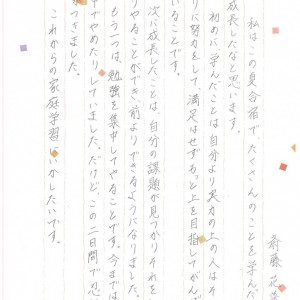 斎藤 花
私はこの夏合宿で、たくさんのことを学んだ
成長したなと思います。
初めに学んだことは自分より実力の上の人は
りに努力をして満足はせずもっと上を目指してがん
いることです。
次に成長したことは、自分の課題が見つかりそれを
りやることができ前よりできるようになりました。
もう一つは、勉強を集中してやることです。今まで
中でやめたりしていました。だけどこの二日間で
つきました。
これからの家庭学習にいかしたいです。